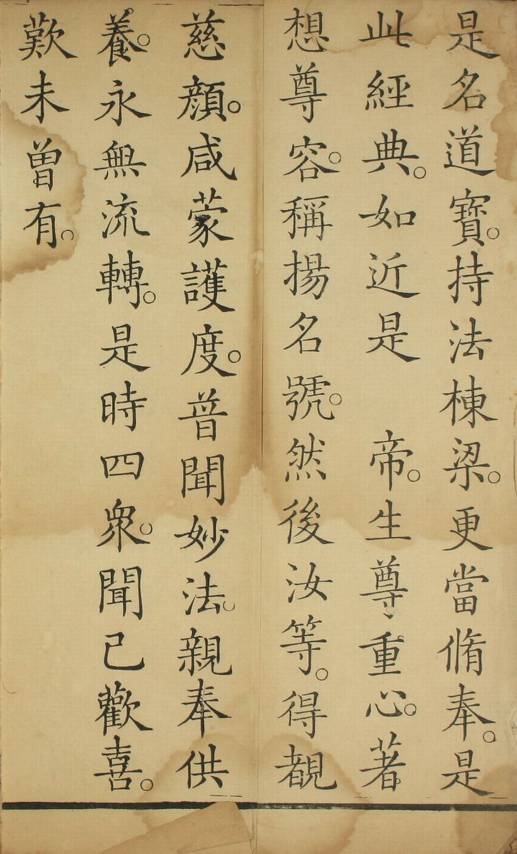 是名道寶。持法棟梁。更當脩奉。是
此經典。如近是　帝。生尊重心。著
想尊容。稱揚名號。然後汝等。得覩
慈顏。咸蒙護度。普聞妙法。親奉供
養。永無流轉。是時四衆。聞已歡喜。
歎未曾有。